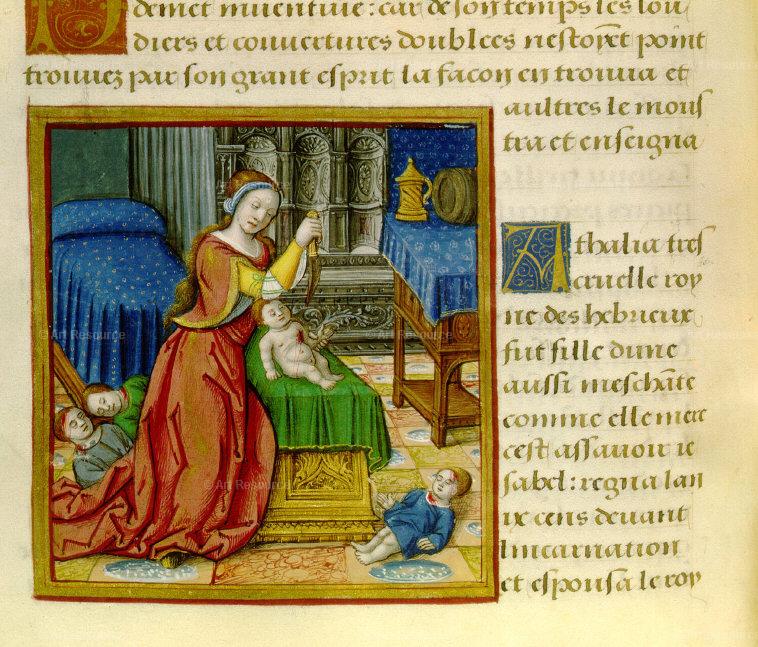 demet inventive: car de son temps les lou
diers et couvertures doublees nestoyẽt point
trouuez par son grant esprit la facon en trouua et
aultres le mons
tra et enseigna
Athalia tres
cruelle roy
ne des hebrieux
fut fille dune
aussi meschãte
comme elle mere
cest assauoir ie
sabel: regna lan
ix cens deuant
lincarnation
et espousa le roy
© Art Resource
© Art Resource
© Art Resource